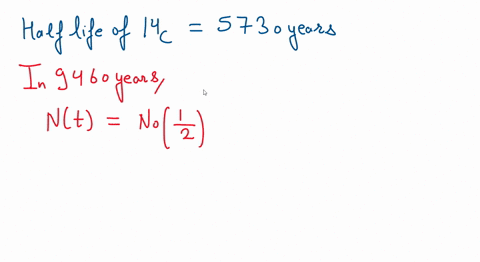 Half life of 14C = 5730 years
In 9460 years,
N(t) = No(1/2)